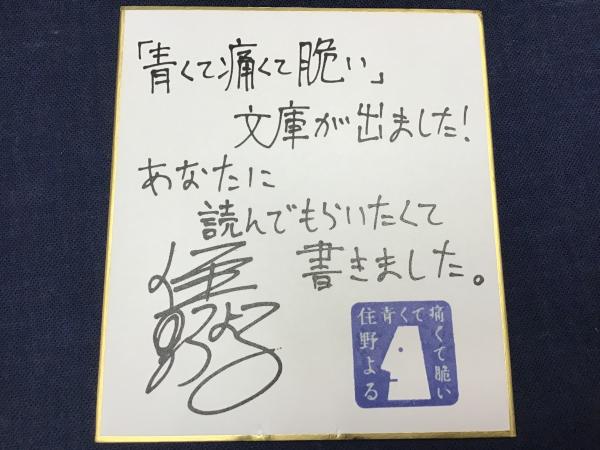 「青くて痛くて脆い」
文庫が出ました!
あなたに
読んでもらいたくて
書きました。
住野よる
青くて
痛くて脆い
住野よる